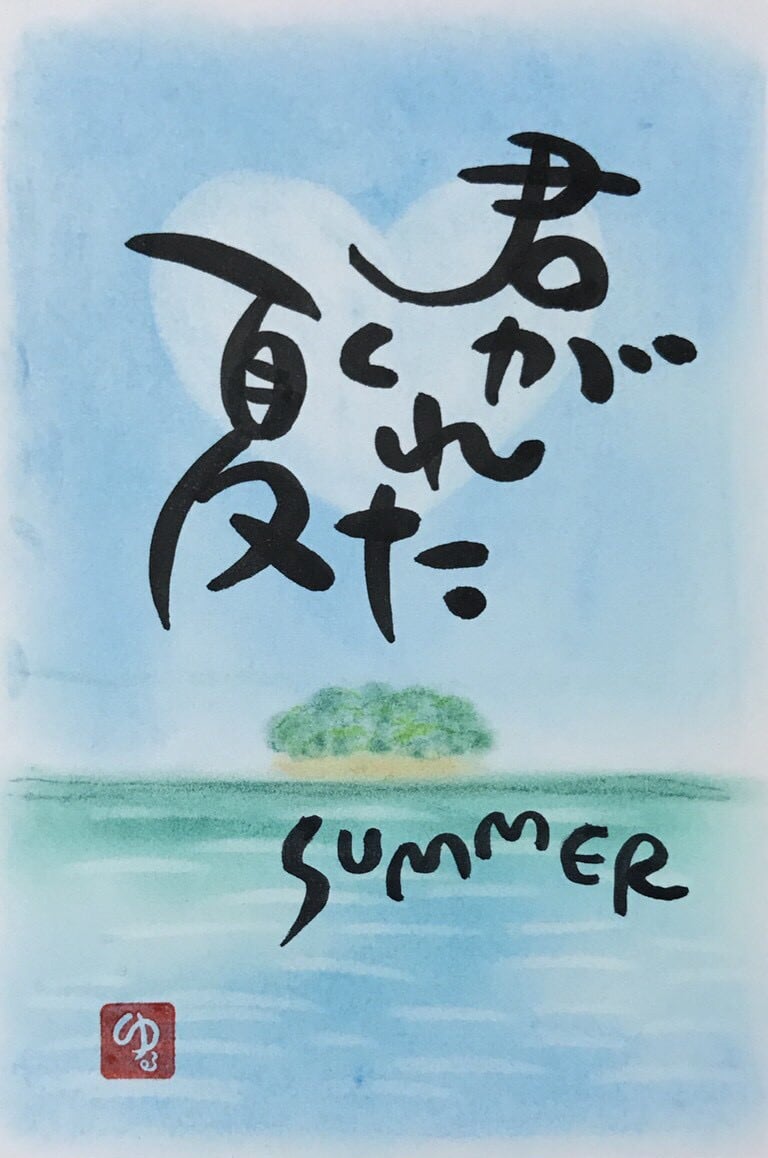 君が
くれた
夏
SUMMER
ゆ